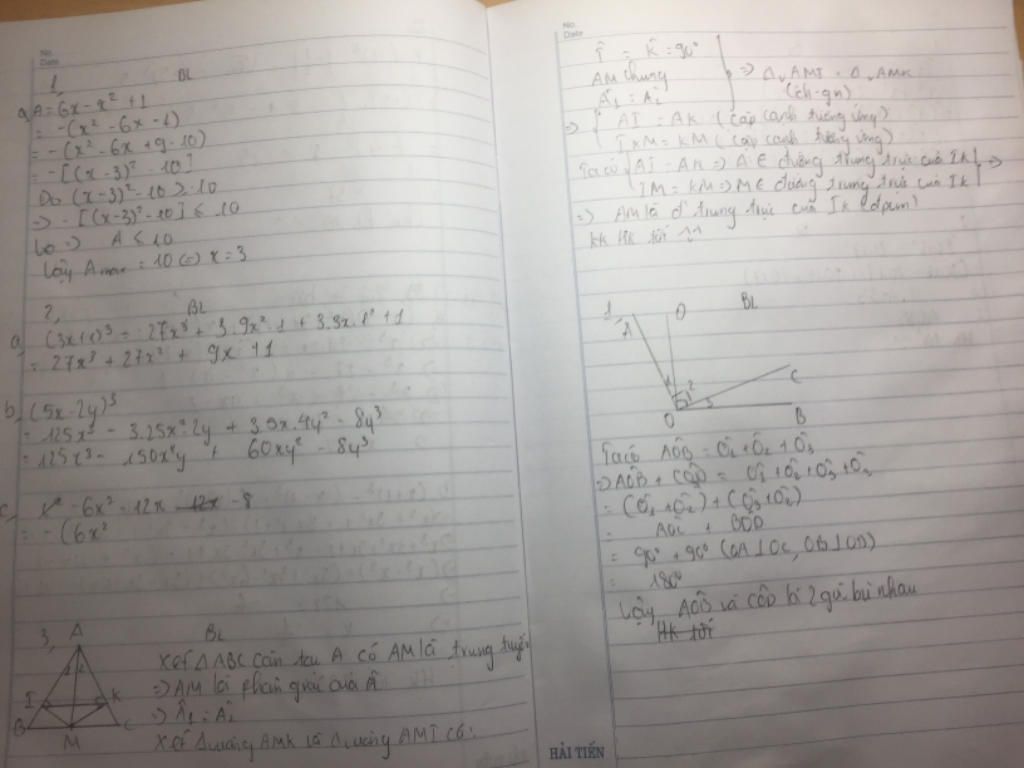 No.
Date
1, BL
a, A = 6x - x² + 1
= -(x² - 6x - 1)
= -(x² - 6x + 9 - 10)
= -[(x - 3)² - 10]
Do (x-3)² - 10 ≥ -10
=> -[(x-3)² - 10] ≤ 10
=> A ≤ 10
Vậy Amax = 10 <=> x = 3
2, BL
a, (3x+1)³ = 27x³ + 3.9x².1 + 3.3x.1² + 1
= 27x³ + 27x² + 9x + 1
b, (5x-2y)³
= 125x³ - 3.25x².2y + 3.5x.4y² - 8y³
= 125x³ - 150x²y + 60xy² - 8y³
c, - 6x² - 12x - 8
= - (6x²
3, BL
A
I K
B M C
Xét ΔABC cân tại A có AM là trung tuyến
=> AM là phân giác của Â
=> Â1 = Â2
Xét Δvuông AMK và Δvuông AMI có:
No.
Date
Î = K̂ = 90°
AM chung
Â1 = Â2
=> Δv AMI = Δv AMK
(ch-gn)
=> AI = AK (cặp cạnh tương ứng)
IM = KM (cặp cạnh tương ứng)
Ta có AI = AK => A ∈ đường trung trực của IK
IM = KM => M ∈ đường trung trực của IK =>
=> AM là đ' trung trực của IK (đpcm)
KK HK tới ^^
1, BL
A D
C
O B
Ta có AÔB = Ô1 + Ô2 + Ô3
=> AÔB + CÔD = Ô1 + Ô2 + Ô3 + Ô2
= (Ô1 + Ô2) + (Ô3 + Ô2)
= AÔC + BÔD
= 90° + 90° (OA ⊥ OC, OB ⊥ OD)
= 180°
Vậy AÔB và CÔD là 2 góc bù nhau
HK tới
HẢI TIẾN